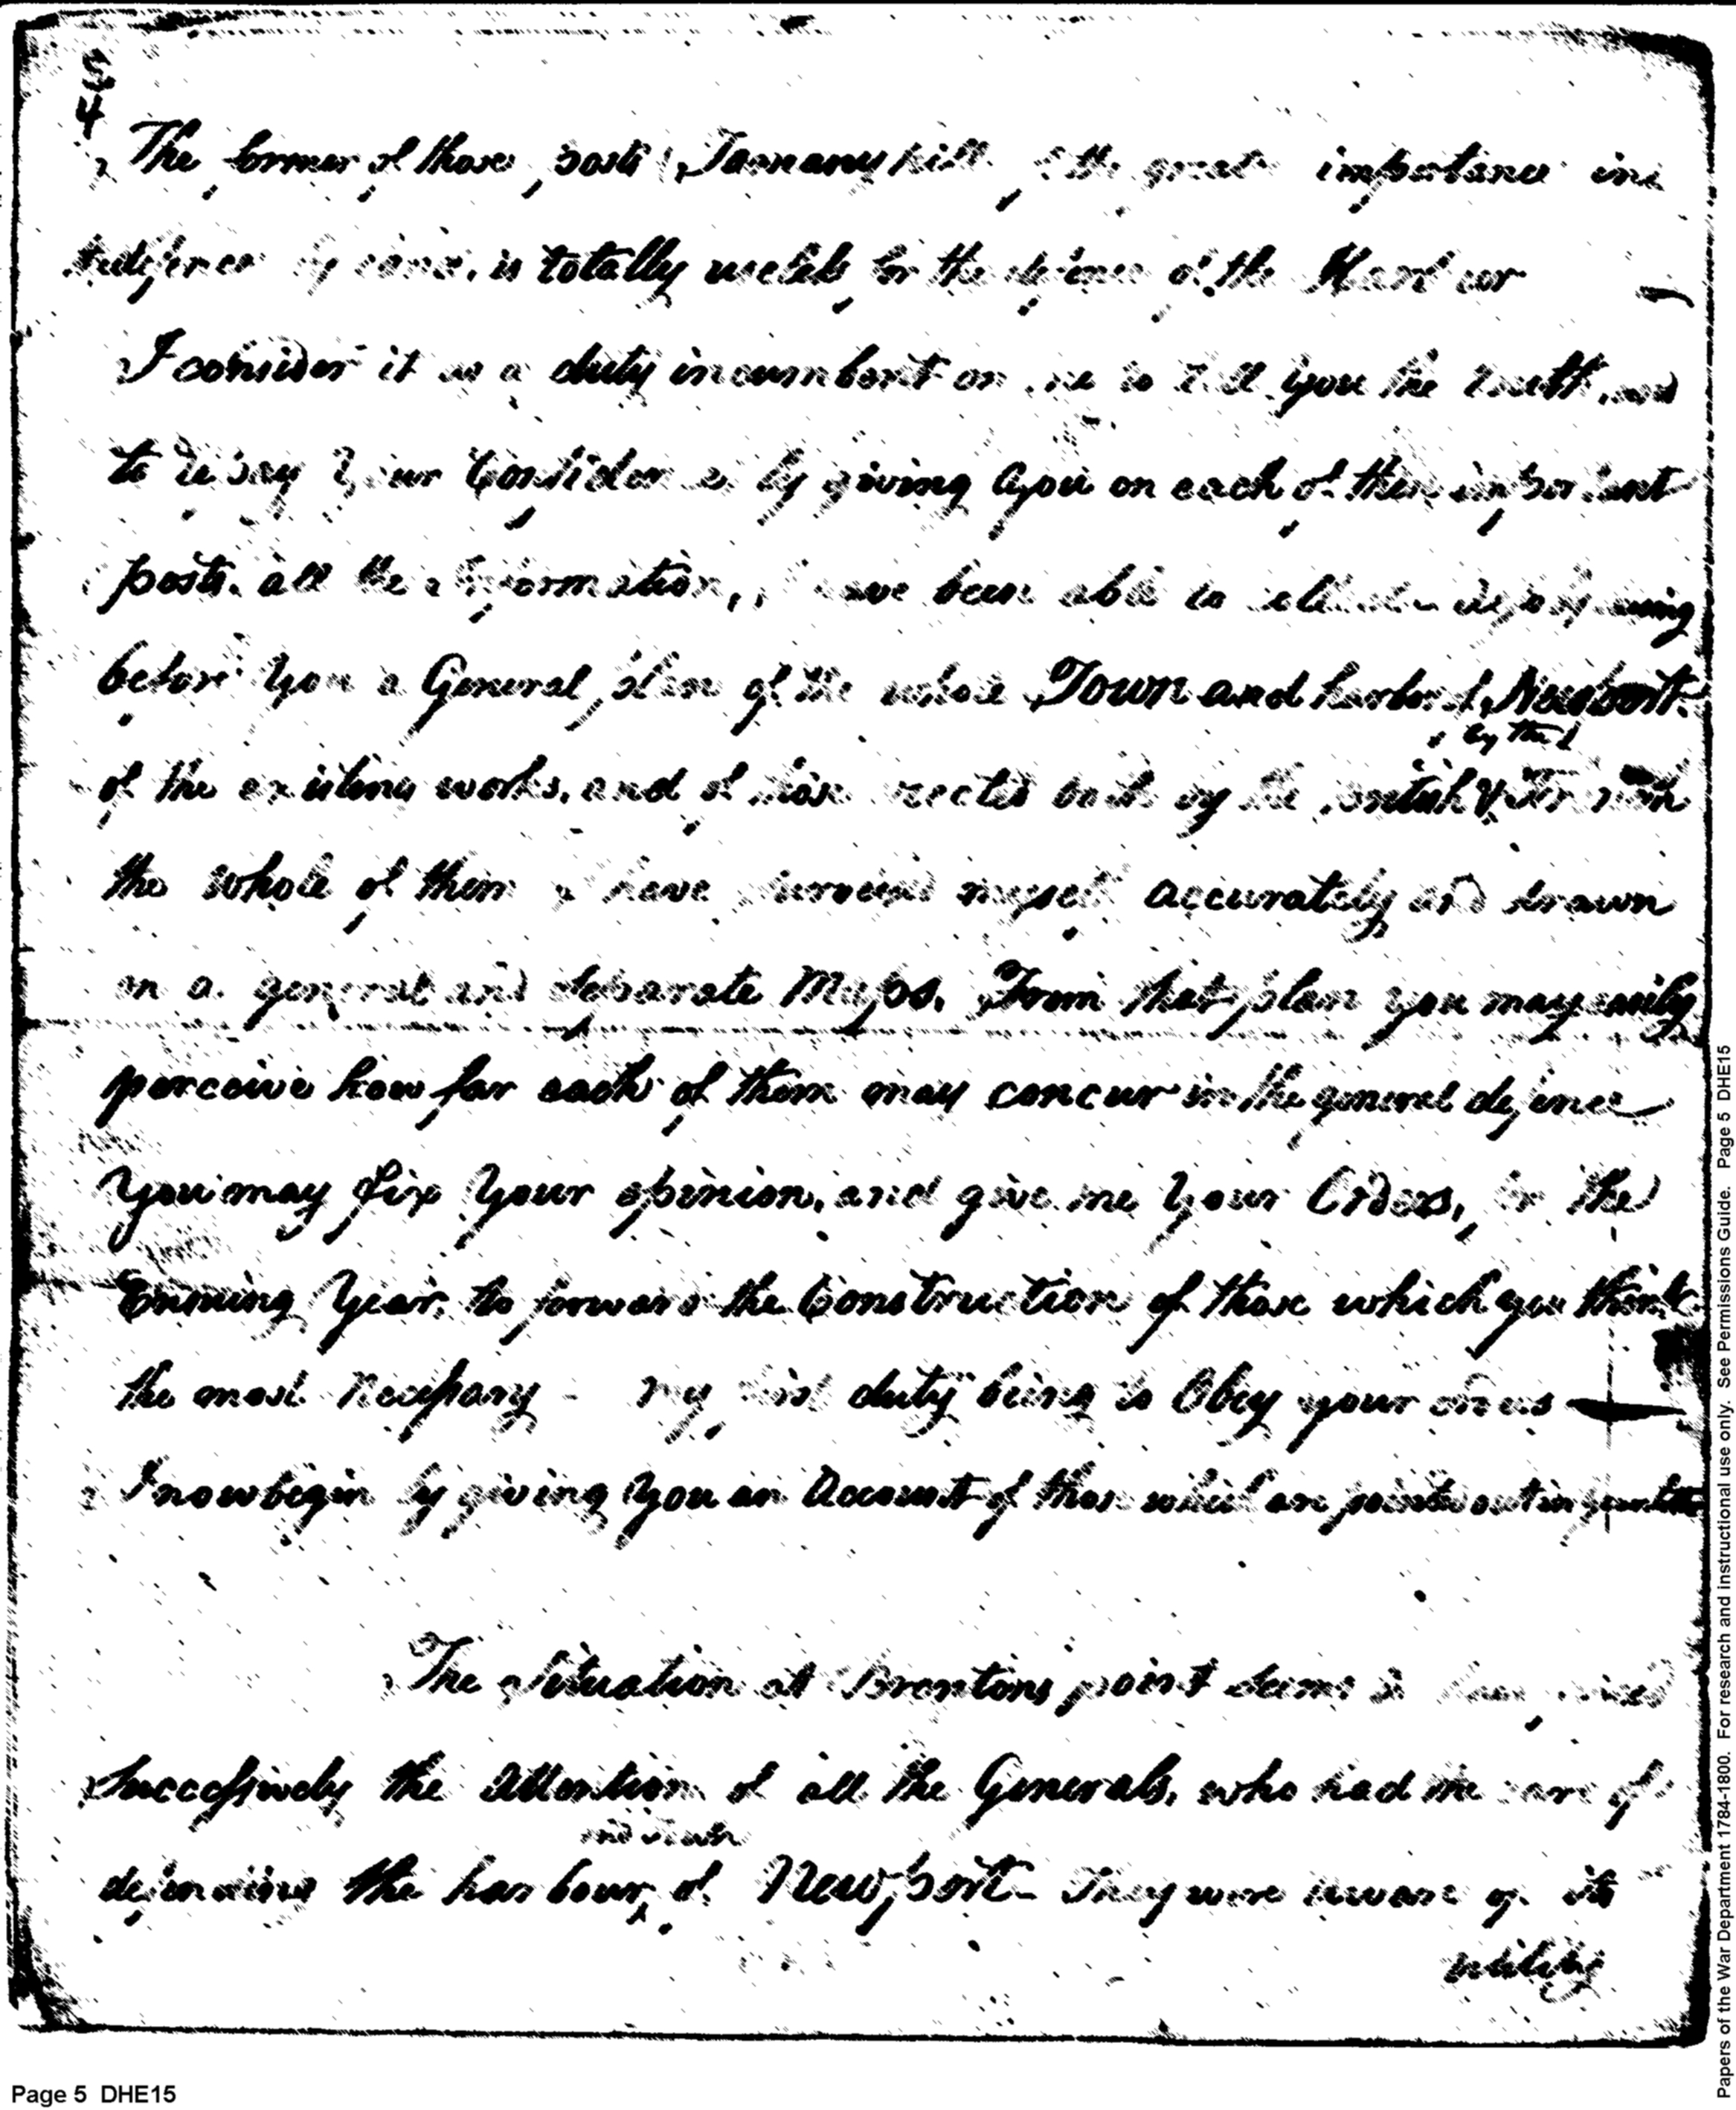 5
4
The former of those posts Tammany hill of the great importance in
defence by land, is totally useless for the defence of the
I consider it as a duty incumbent on me to tell you the truth, and
to repay Your Confidence by giving you on each of these important
posts all the Information, I have been able to
before You a General plan of the whole Town and harbor of Newport
by the
of the existing works, and of those erected both by the British & French
the whole of them I have surveyed myself accurately and drawn
on a general and separate Maps. From that plan you may easily
perceive how far each of them may concur in the general defence
You may fix Your opinion, and give me Your Orders, for the
Ensuing Year, to forward the Construction of those which you think
the most Necessary - My first duty being to Obey your orders
I now begin by giving You an Account of those which are pointed out in
The Situation at Brentons point seems to have
Successively the Attention of all the Generals, who had the care of
defending the harbour of Newport - They were aware of its
utility
Page 5 DHE15
Papers of the War Department 1784-1800. For research and instructional use only. See Permissions Guide. Page 5 DHE15